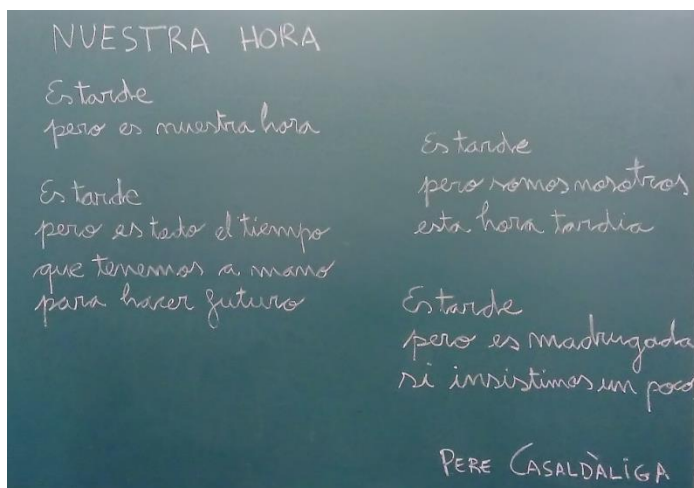 NUESTRA HORA
Es tarde
pero es nuestra hora
Es tarde
pero es todo el tiempo
que tenemos a mano
para hacer futuro
Es tarde
pero somos nosotros
esta hora tardía
Es tarde
pero es madrugada
si insistimos un poco
PERE CASALDÀLIGA